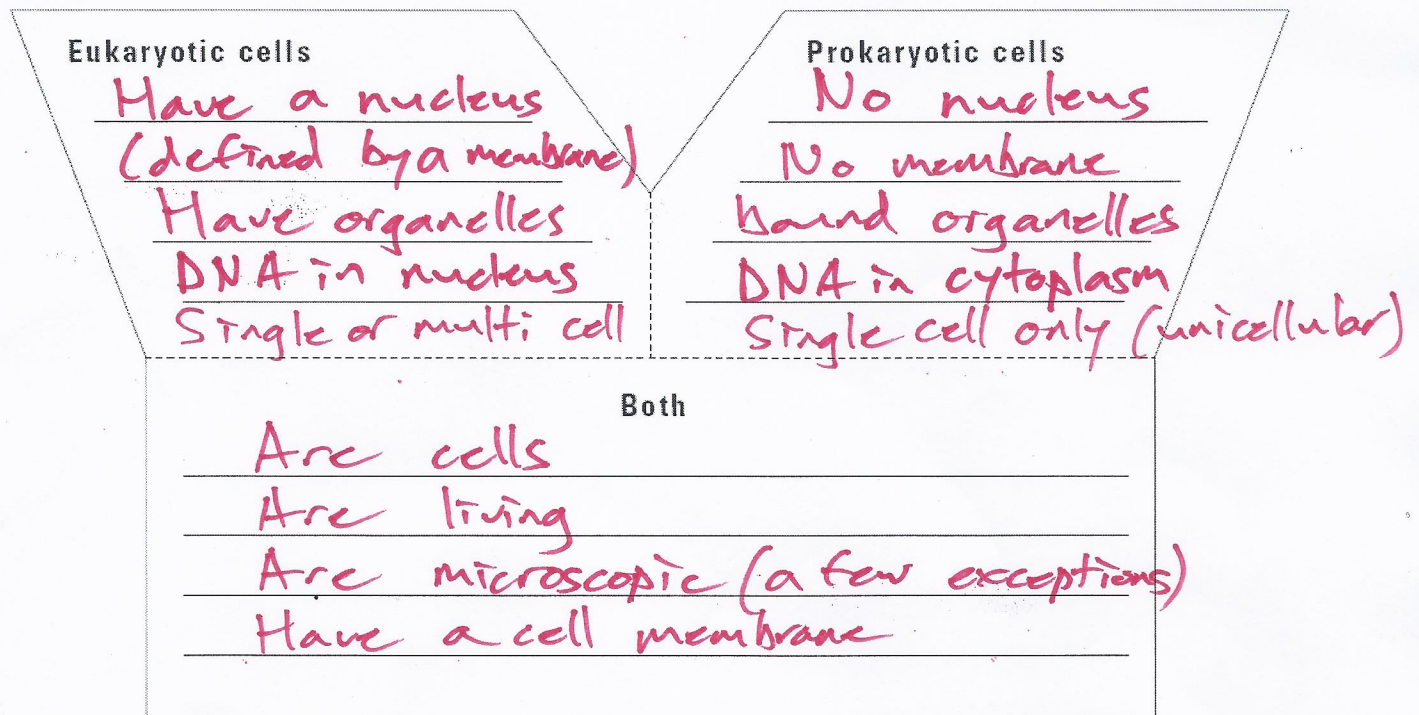 Eukaryotic cells
Have a nucleus
(defined by a membrane)
Have organelles
DNA in nucleus
Single or multi cell
Prokaryotic cells
No nucleus
No membrane
bound organelles
DNA in cytoplasm
Single cell only (unicellular)
Both
Are cells
Are living
Are microscopic (a few exceptions)
Have a cell membrane